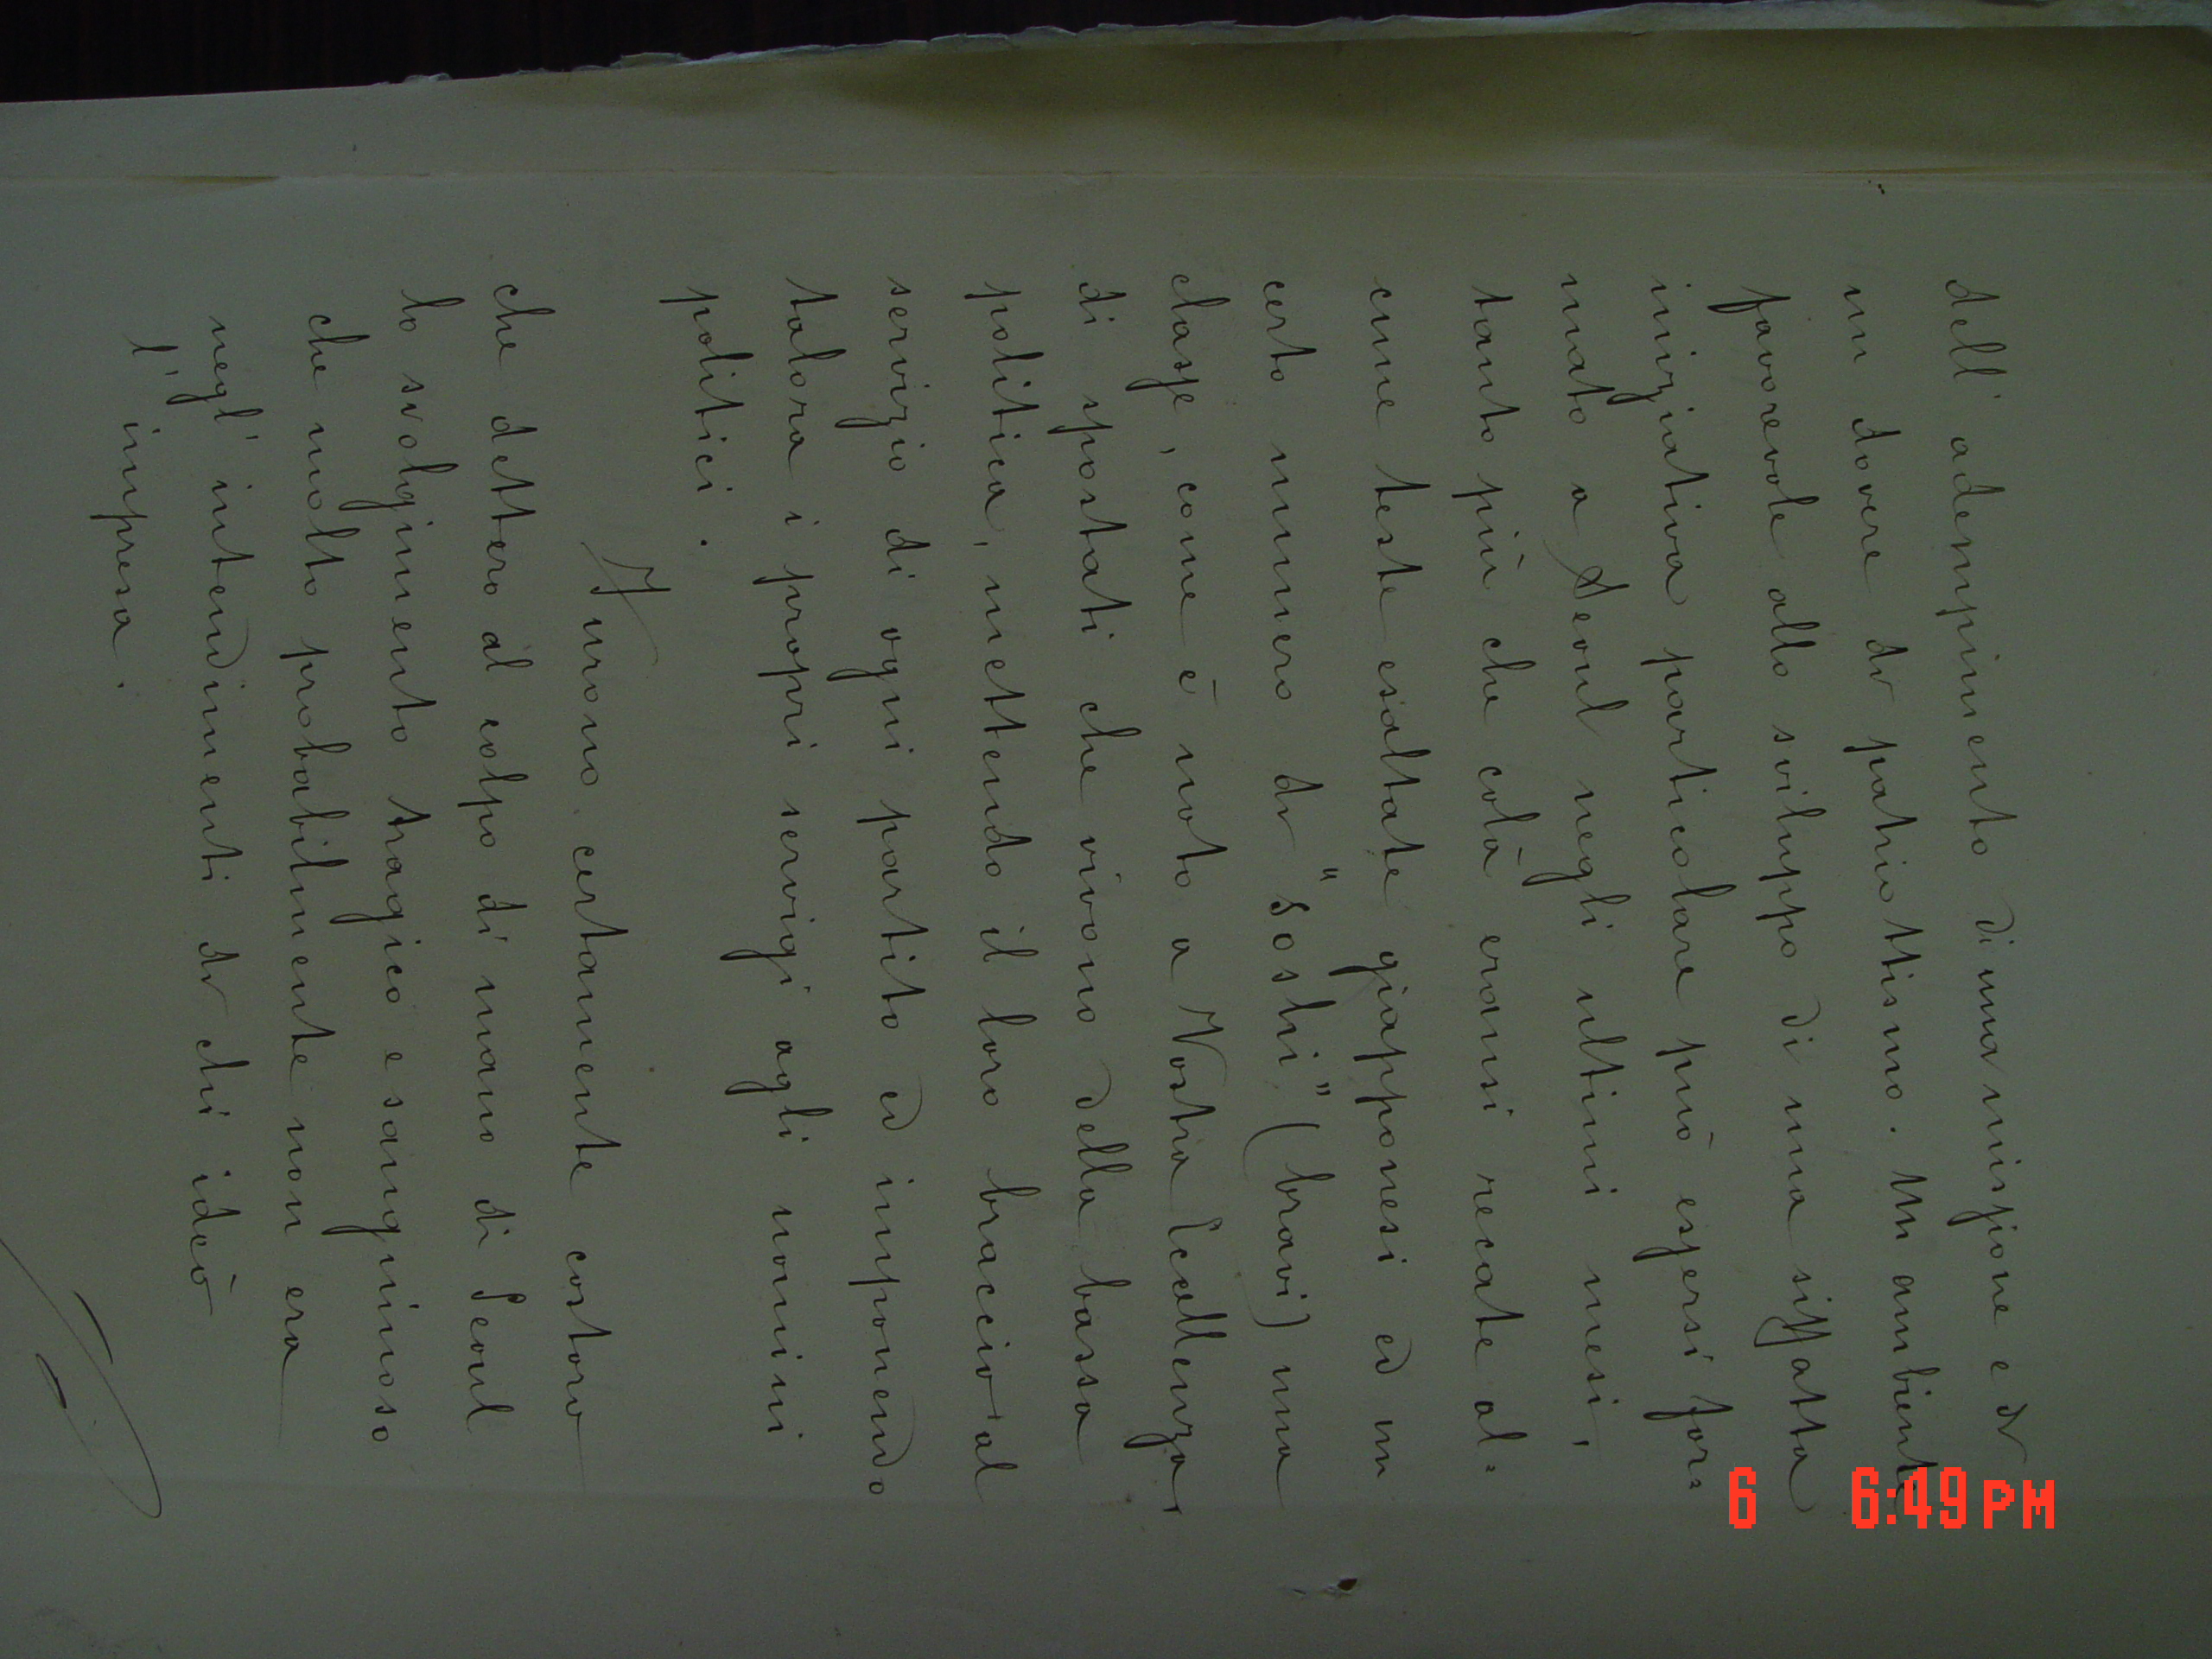 dell' adempimento di una missione e di
un dovere di patriottismo. Un ambiente
favorevole allo sviluppo di una siffatta
iniziativa particolare può essersi for=
mato a Seoul negli ultimi mesi,
tanto più che colà eransi recate al=
cune teste esaltate giapponesi ed un
certo numero di "Soshi" (bravi) una
classe, come è noto a Vostra Eccellenza,
di spostati che vivono della bassa
politica, mettendo il loro braccio al
servizio di ogni partito ed imponendo
talora i propri servigi agli uomini
politici.
Furono certamente costoro
che dettero al colpo di mano di Seoul
lo svolgimento tragico e sanguinoso
che molto probabilmente non era
negl' intendimenti di chi ideò
l' impresa.
6 6:49 PM